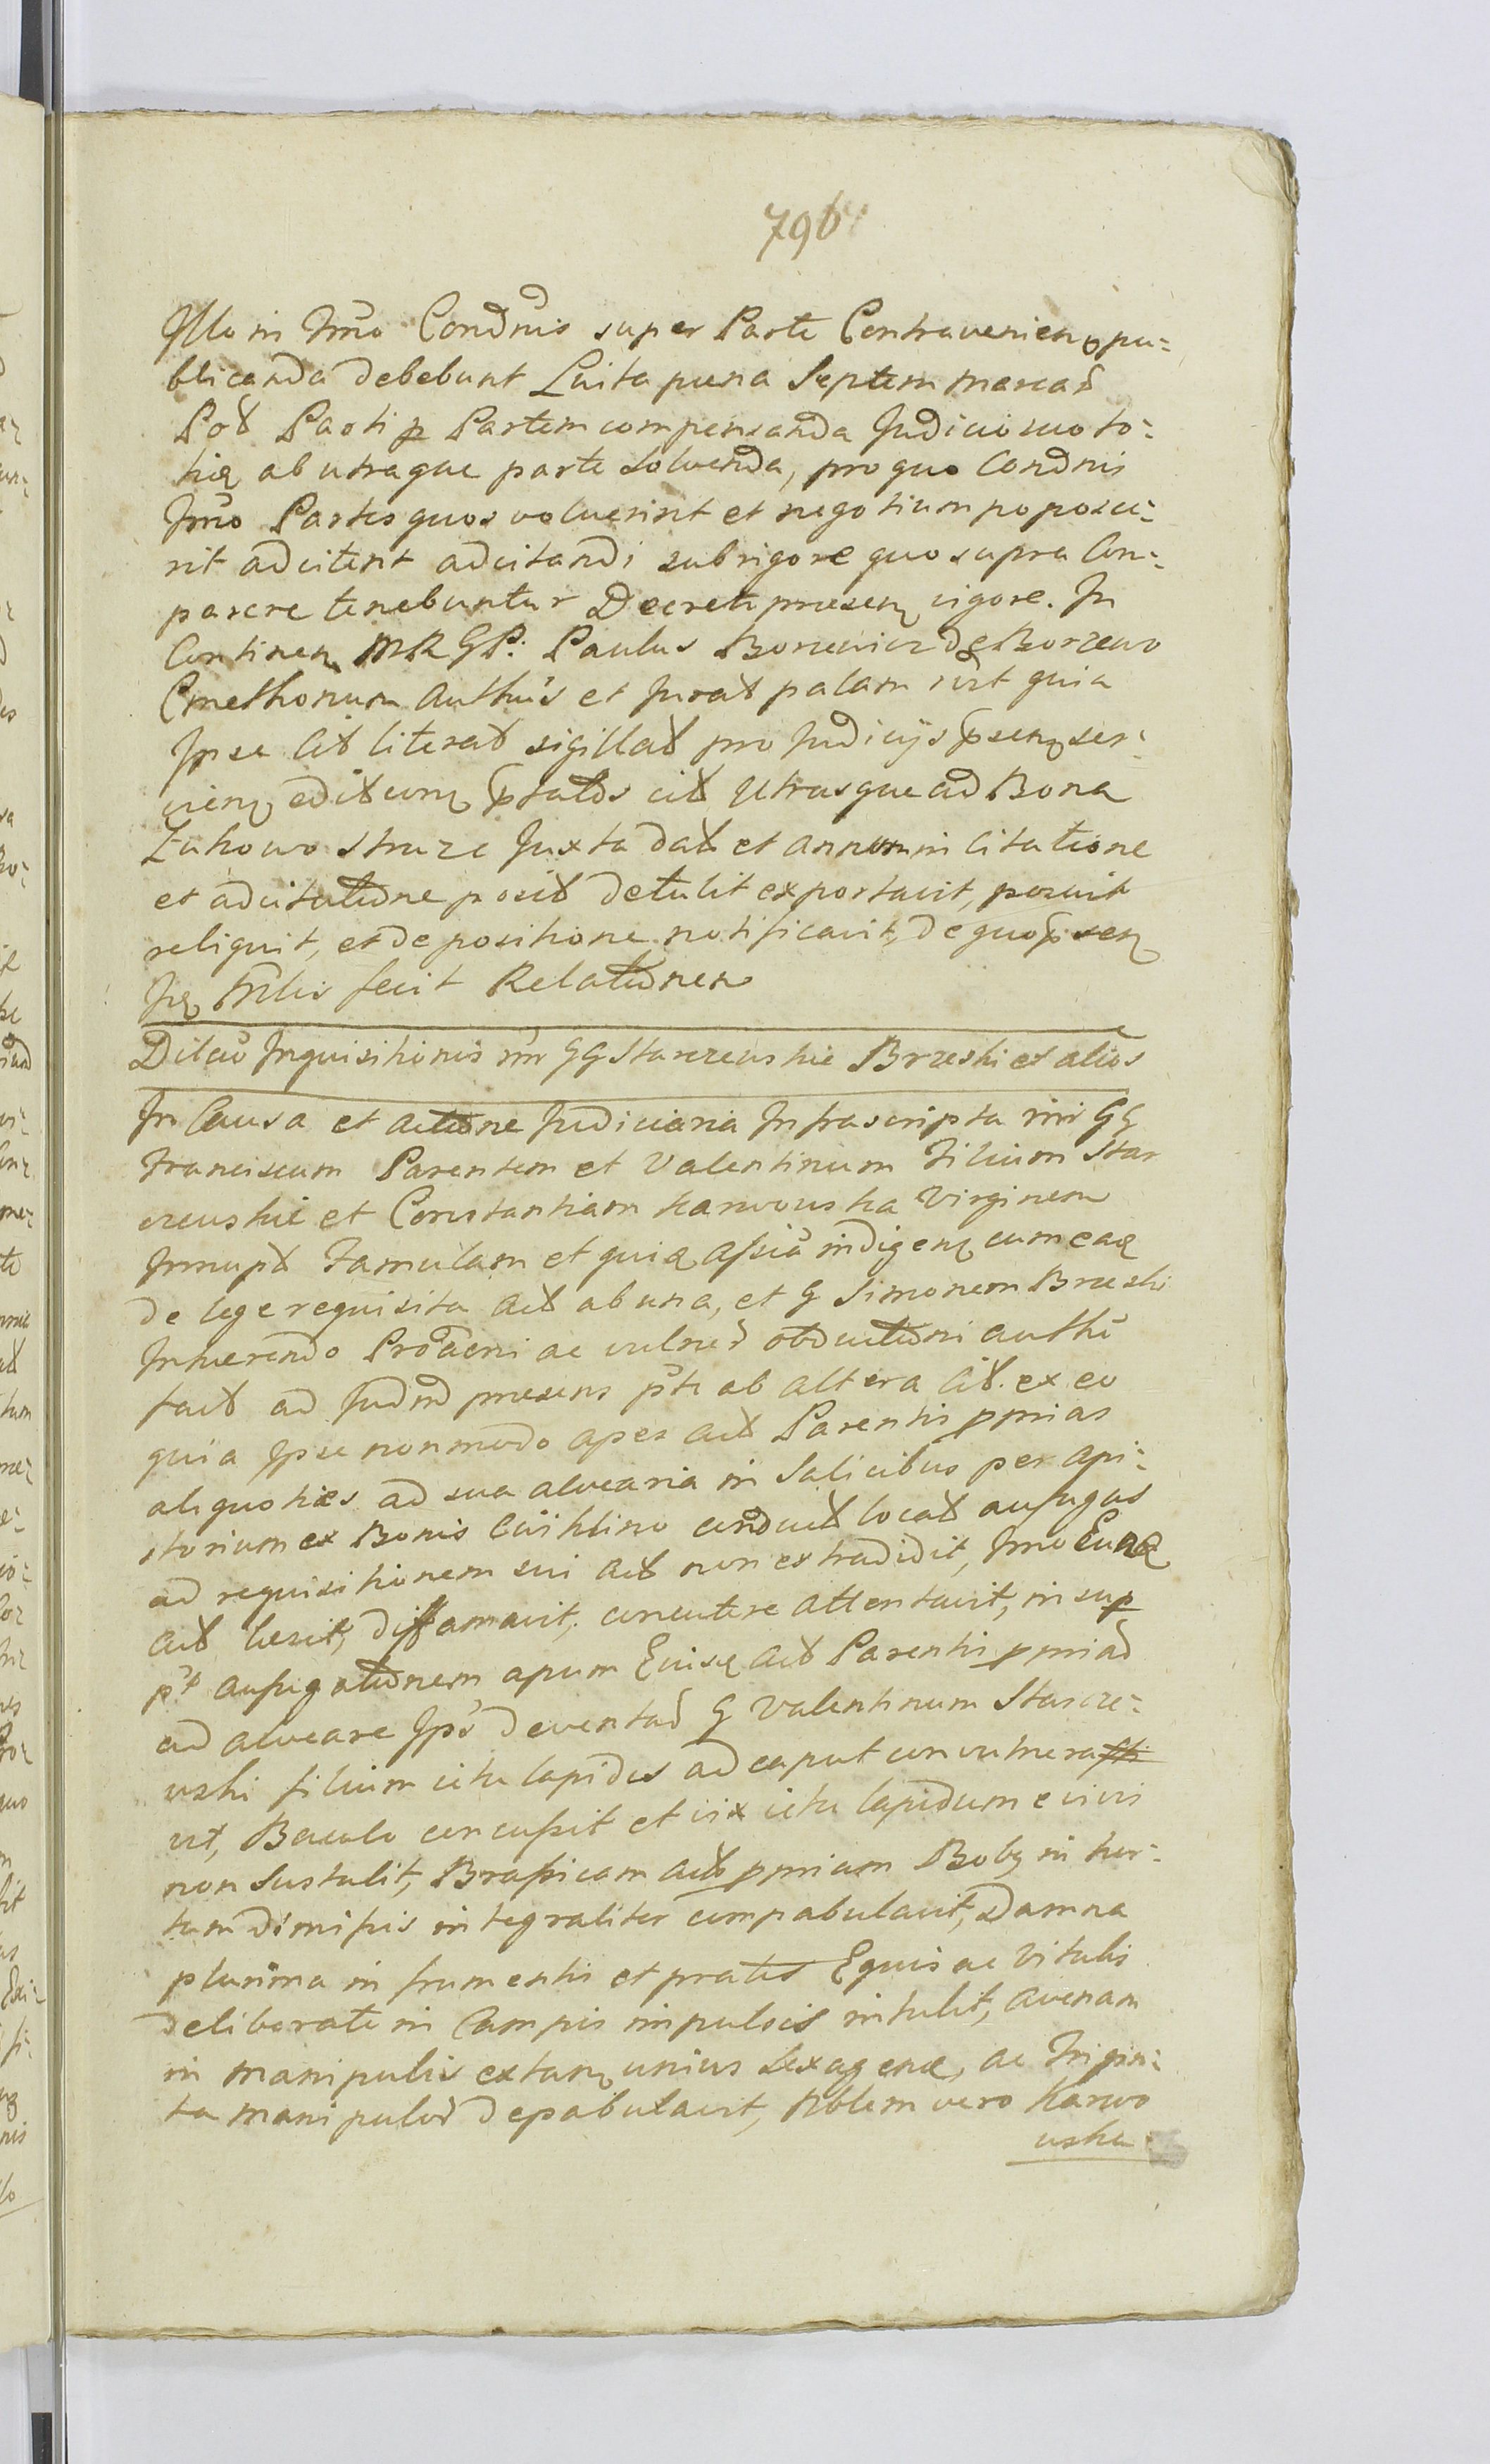 796
Illo in Tmo Condnis super Parte Contravenien pu=
blicanda debebunt Luita pæna Septem marcar
Pol Parti p Partem compensanda Judicio suo to=
ties ab utraque parte solvenda, pro quo Condnis
Tmo Partes quos voluerint et negotium poposce=
rit adcitent adcitandi sub rigore quo supra Com=
parere tenebuntur Decreti præsen vigore. In
Continen MRGP. Paulus Borzewicz de Borzewo
Cmethonum Authūs et Jurat palam rūt quia
Ipse Cit literat sigillat pro Judicijs psen ser=
vien edit eun ptatos cit Utrasque ad Bona
Łukowo Struze Juxta dat et annum in Citatione
et adcitatione posit detulit exportavit, posuit
reliquit, et de positione notificavit, de quo psen
Jq Mlis fecit Relationem
Dilaō Inquisitionis inr GG Starczewskie Brzeski et alios
In Causa et actione Judiciaria Infrascripta inr GG
Franciscum Parentem et Valentinum Filium Star
czewskie et Constantiam Karwowska Virginem
Innupt Famulam et quia assiā indigen cum eaq
de lege requisita act ab una, et G Simonem Brzeski
Inhærendo Proāoni ac vulner obductioni authē
fact ad Judm præsens pti ab altera Cit. ex eo
quia Ipse non modo apes act Parentis pprias
aliquoties ad sua alvearia in Salicibus per api=
storium ex Bonis conduct locat aufugas
ad requisitionem sui act non extradidit, Imo Eunq
act læsit, diffamavit, concutere attentavit, in sup
pt aufugationem apum Eiusq act Parentis ppriar
ad alveare Ips deventar G Valentinum Starcze=
wski filium ictu lapidis ad caput convulnera
vit, Baculo concussit et vix ictu lapidum e vivis
non sustulit, Brassicam act ppriam Bobg in hor=
tum dimissis integraliter compabulavit, Damna
plurima in frumentis et pratis Equis ac Vitulis
deliberate in Campis impulsis intulit, avenam
in manipulis extan unius sexagenæ, ac Trigin=
ta manipulor depabulavit, Nblem vero Karwo
wska